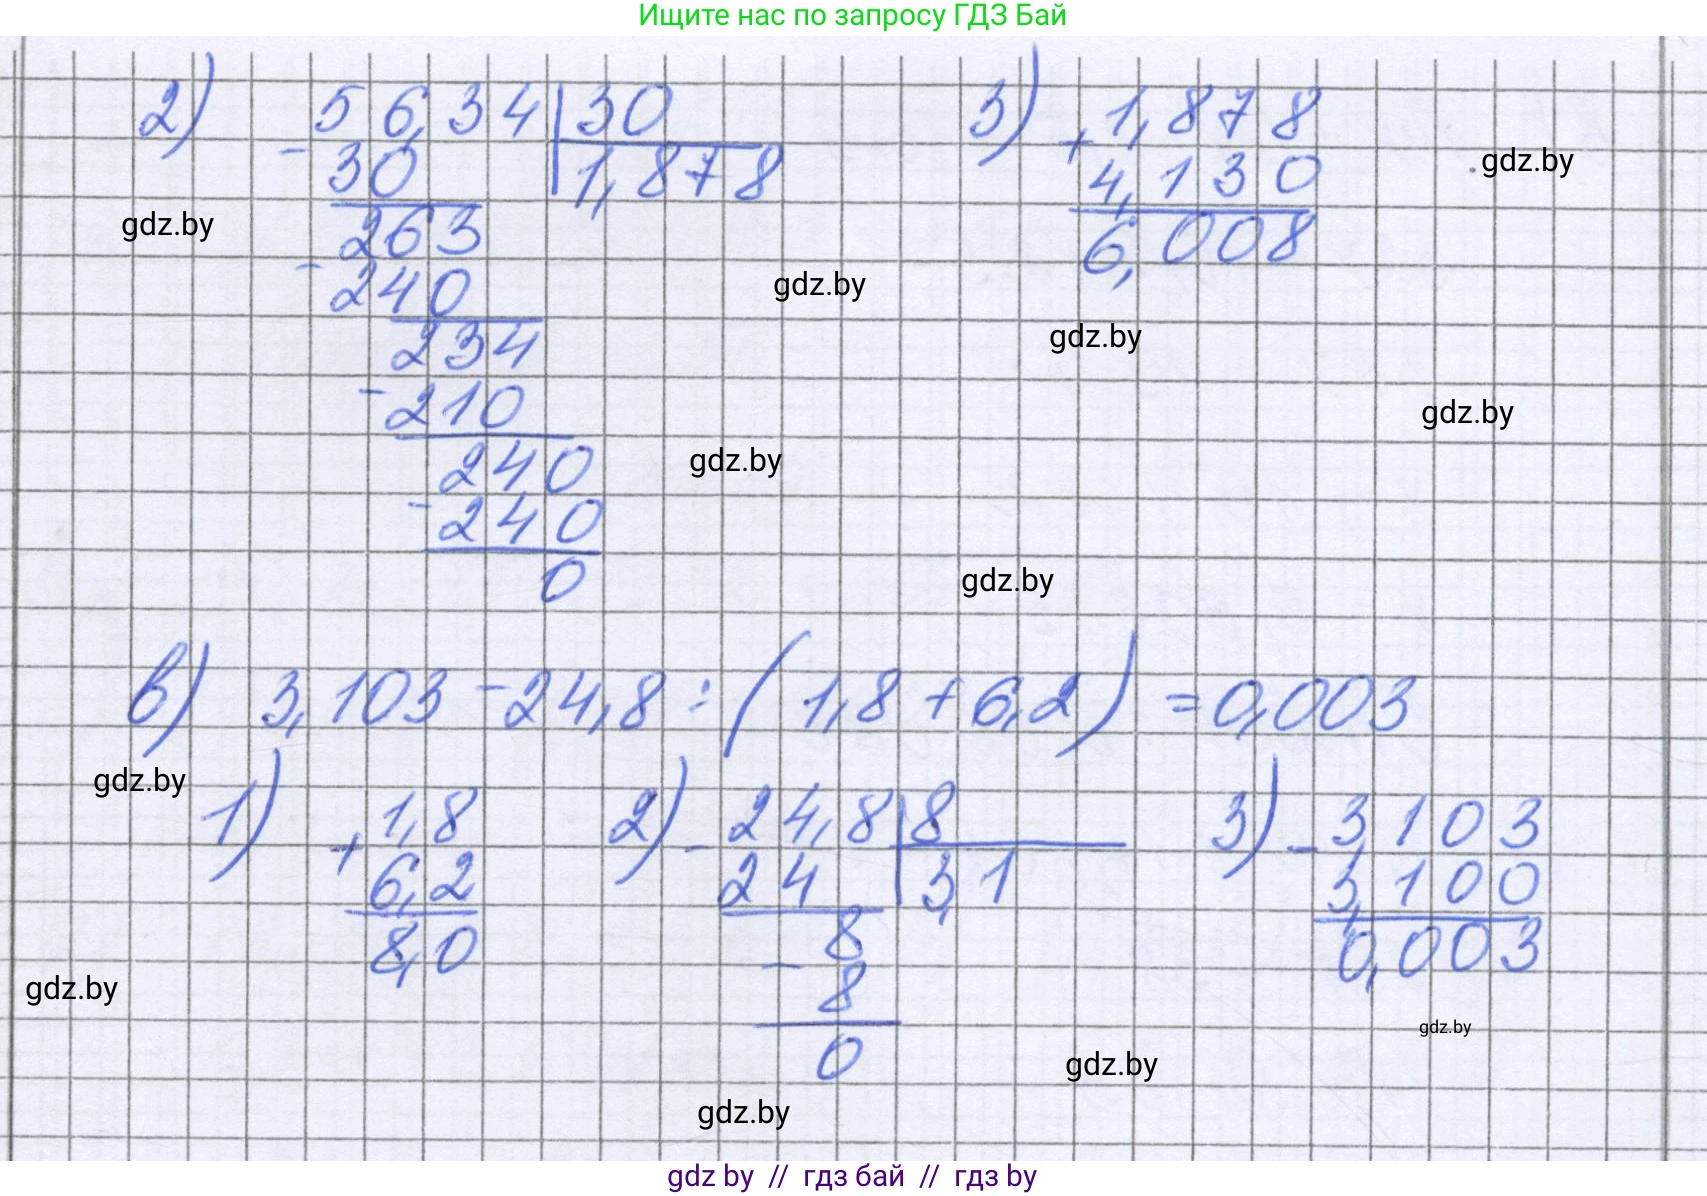 Ищите нас по запросу ГДЗ Бай
2) 56,34 | 30
- 30 | 1,878
263
- 240
234
- 210
240
- 240
0
3) + 1,878
4,130
6,008
gdz.by
gdz.by
gdz.by
gdz.by
gdz.by
gdz.by
gdz.by
в) 3,103 - 24,8 : ( 1,8 + 6,2 ) = 0,003
gdz.by
1) + 1,8
6,2
8,0
2) - 24,8 | 8
24 | 3,1
8
- 8
0
3) - 3,103
3,100
0,003
gdz.by
gdz.by
gdz.by
gdz.by
gdz by // гдз бай // гдз by